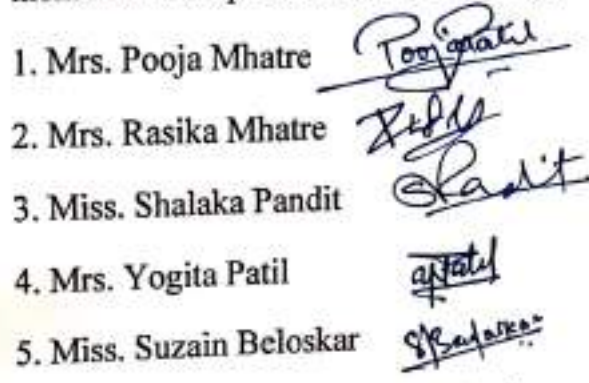 1. Mrs. Pooja Mhatre PoojaPatil
2. Mrs. Rasika Mhatre
3. Miss. Shalaka Pandit SPandit
4. Mrs. Yogita Patil
5. Miss. Suzain Beloskar